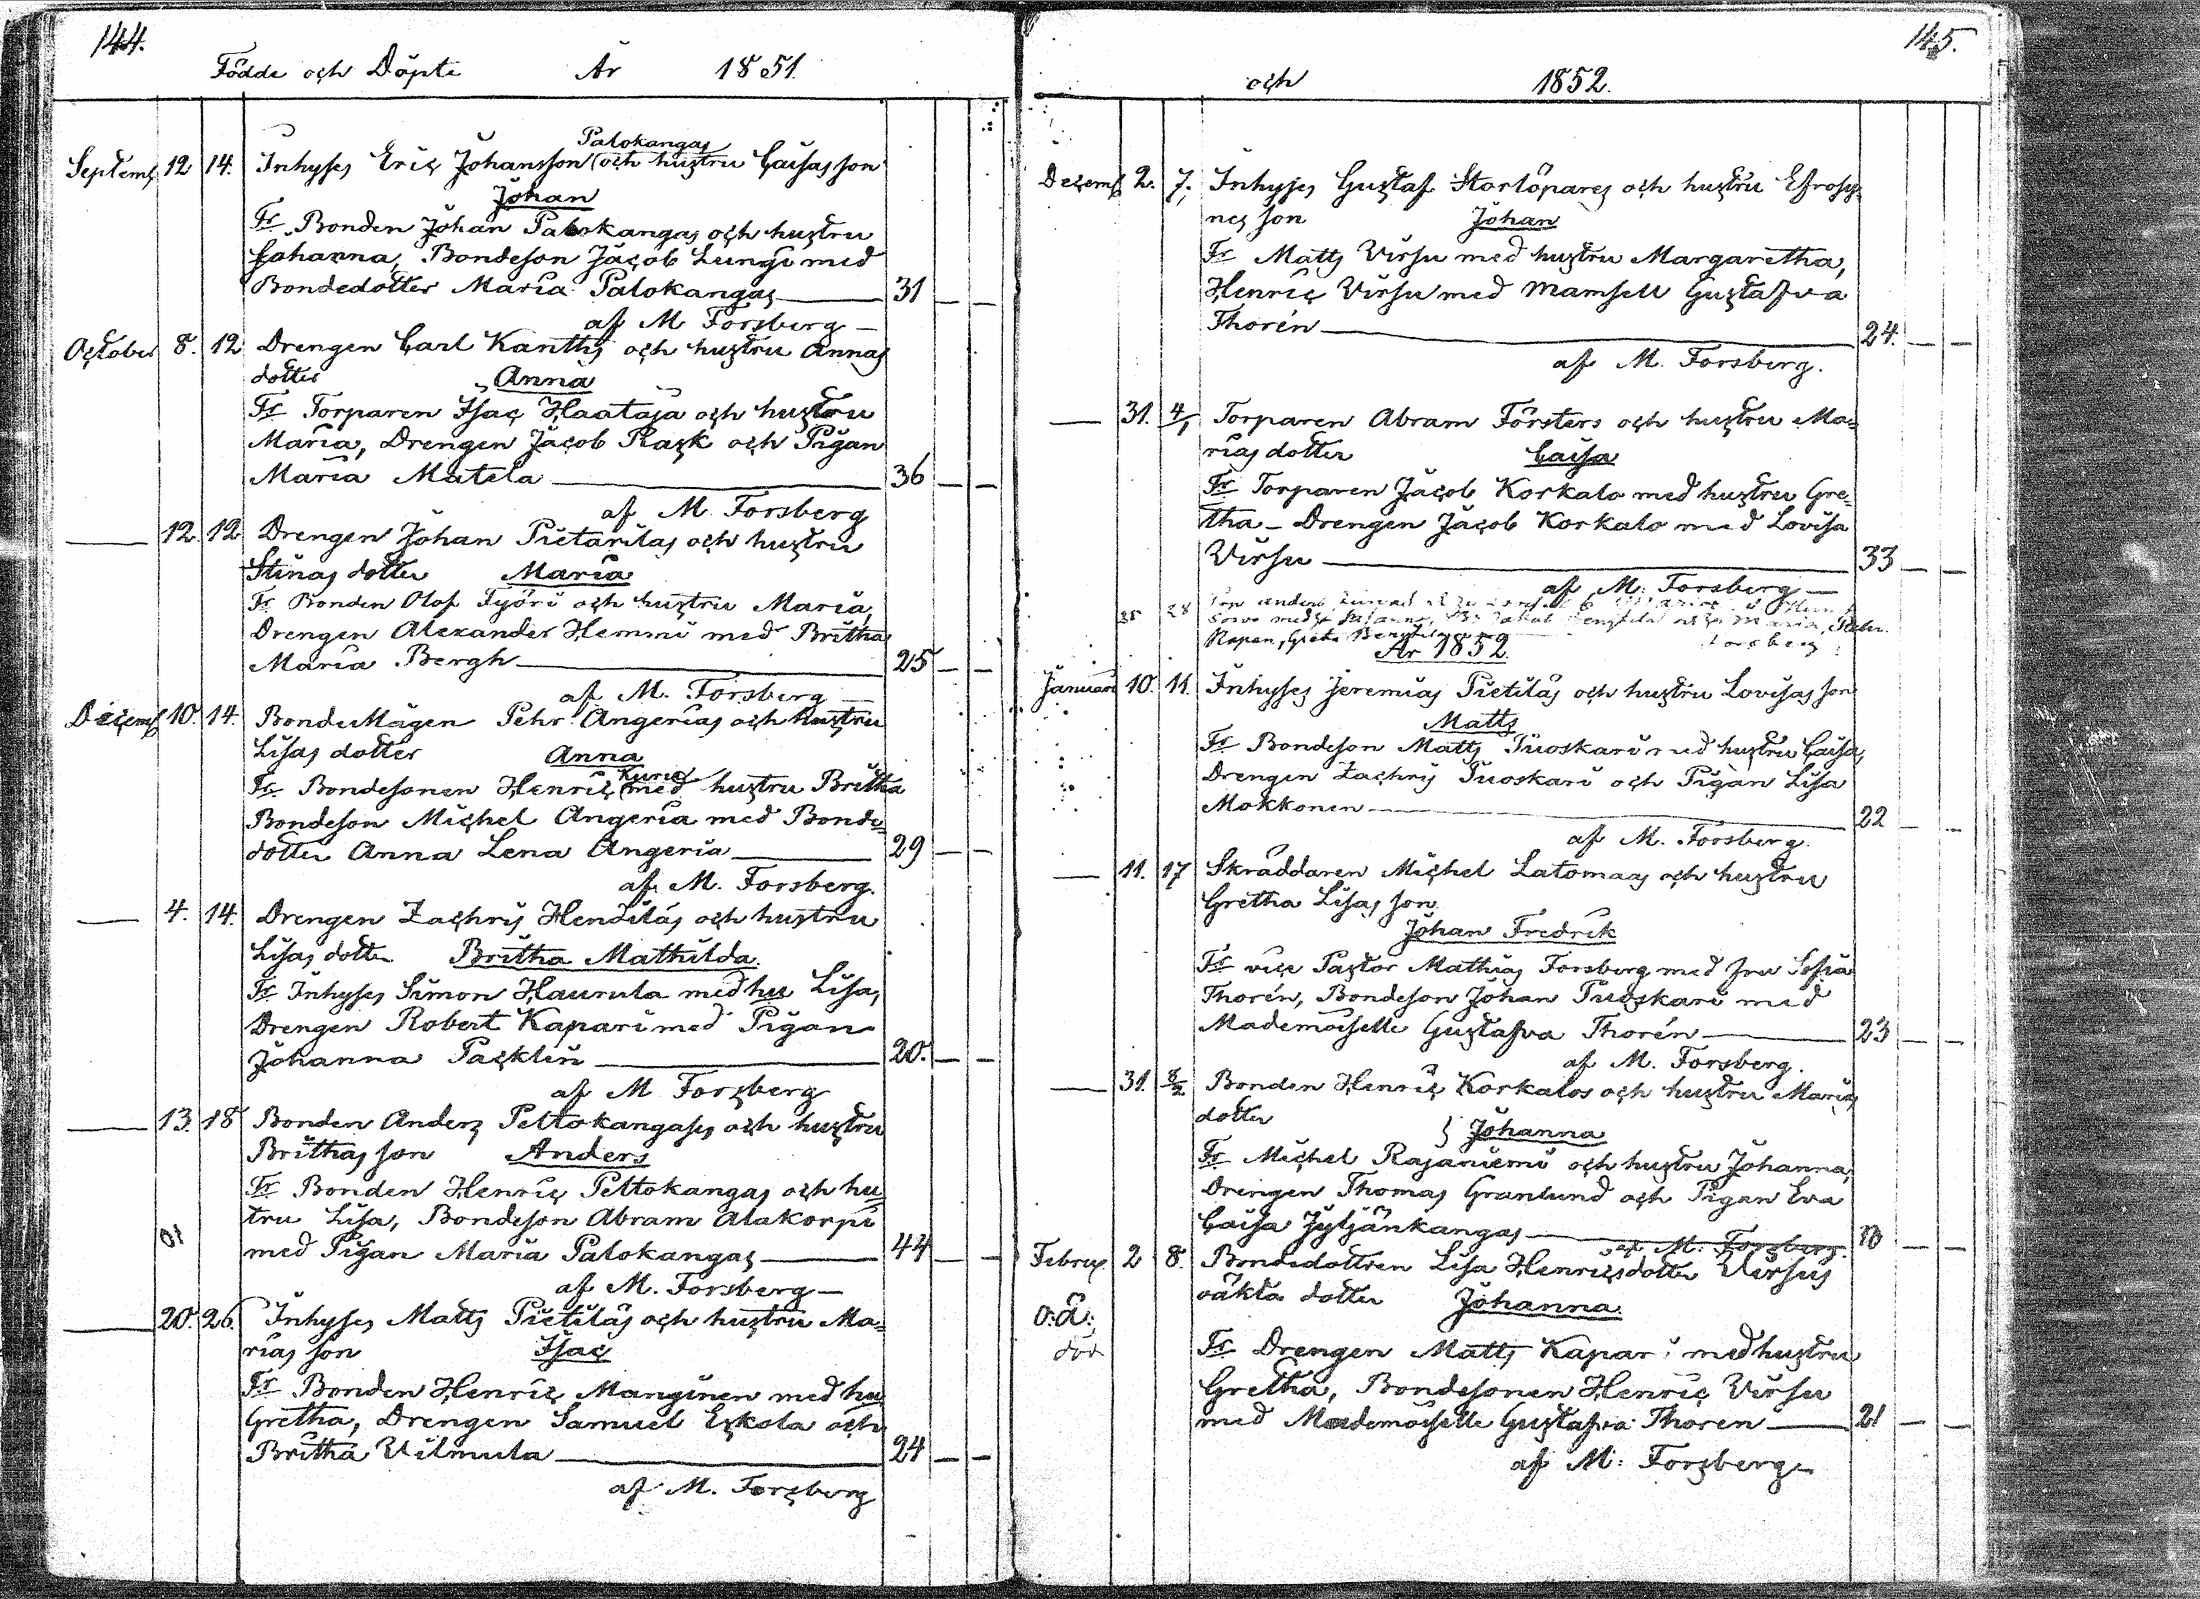 144.
Födde och Döpte År 1851.
Palokangas
Septemb 12 14. Inhyses Eric Johansson (och hustru Caisas son
Johan
Fr Bonden Johan Palokangas och hustru
Johanna, Bondeson Jacob Lungi med
Bondedotter Maria Palokangas 31
af M Forsberg
October 8. 12 Drengen Carl Kanths och hustru Annas
dotter Anna
Fr Torparen Isac Haataja och hustru
Maria, Drengen Jacob Rask och Pigan
Maria Matela 36
af M. Forsberg
12. 12 Drengen Johan Pietarilas och hustru
Stinas dotter Maria
Fr Bonden Olof Työri och hustru Maria,
Drengen Alexander Hemmi med Britha
Maria Bergh 25
af M. Forsberg
Decemb 10. 14. BondeMågen Pehr Angerias och hustru
Lisas dotter Anna
Fr Bondesonen Henric (med hustru Britha
Bondeson Michel Angeria med Bonde-
dotter Anna Lena Angeria 29
af M. Forsberg.
4. 14. Drengen Zachris Hendiläs och hustru
Lisas dotter Britha Mathilda.
Fr Inhyses Simon Haurula med hu Lisa,
Drengen Robert Kapari med Pigan
Johanna Packlin 20.
af M Forsberg
13. 18 Bonden Anders Peltokangases och hustru
Brithas son Anders
Fr Bonden Henric Peltokangas och hu-
tru Lisa, Bondeson Abram Alakorpi
med Pigan Maria Palokangas 44
af M. Forsberg
20. 26. Inhyses Matts Pietiläs och hustru Ma-
rias son Isac
Fr Bonden Henric Manginen med hu
Gretha, Drengen Samuel Eskola och
Britha Vilmula 24
af M. Forsberg
145.
och 1852.
Decemb 2. 7. Inhyses Gustaf Storlöpares och hustru Efrosy-
nes son Johan
Fr Matts Virsu med hustru Margaretha,
Henric Virsu med Mamsell Gustafva
Thorén 24.
af M. Forsberg.
31. 4/1 Torparen Abram Försters och hustru Ma-
rias dotter Caisa
Fr Torparen Jacob Korkalo med hustru Gre-
tha – Drengen Jacob Korkalo med Lovisa
Virsu 33
af M. Forsberg
28
Greta
År 1852.
Januari 10. 11. Inhyses Jeremias Pietiläs och hustru Lovisas son
Matts
Fr Bondeson Matts Tuoskari med hustru Caisa,
Drengen Zachris Tuoskari och Pigan Lisa
Mokkonen 22
af M. Forsberg.
11. 17 Skräddaren Michel Latomaas och hustru
Gretha Lisas son
Johan Fredrik
Fr vice Pastor Mathias Forsberg med fru Sofia
Thorén, Bondeson Johan Tuoskari med
Mademoiselle Gustafva Thorén 23
af M. Forsberg.
31. 8/2 Bonden Henric Korkalos och hustru Marias
dotter Johanna
Fr Michel Rajaniemi och hustru Johanna,
Drengen Thomas Granlund och Pigan Eva
Caisa Jyljänkangas
af M. Forsberg.
Februar 2 8. Bondedottren Lisa Henricsdotter Virsus
oäkta dotter Johanna.
o:ä:
död
Fr Drengen Matts Kapari med hustru
Gretha, Bondesonen Henric Virsu
med Mademoiselle Gustafva Thoren 21
af M. Forsberg